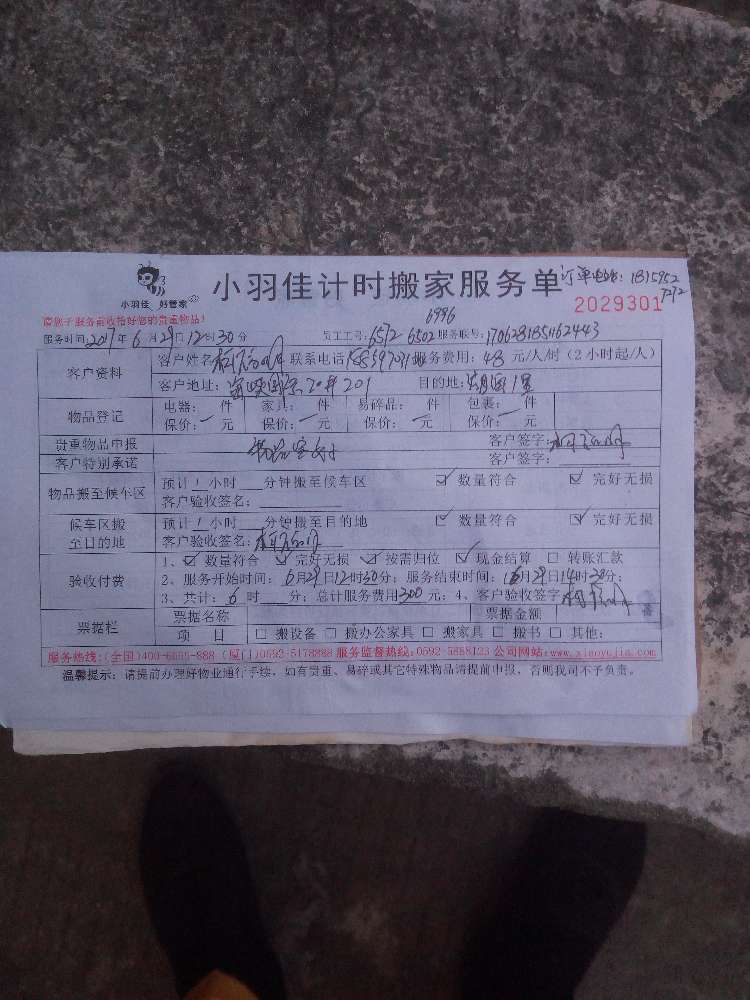 小羽佳计时搬家服务单 订单电话：1815952
小羽佳 好管家 2029301 7212
6996
请您于服务前收拾好您的贵重物品！
服务时间：2017年6月29日12时30分 员工工号：6512 6502 服务联号：170628185162443
客户资料
客户姓名 联系电话 服务费用：48元/人/时（2小时起/人）
客户地址：海峡国际20#201 目的地：
物品登记
电器： 件 家具： 件 易碎品： 件 包裹： 件
保价：一元 保价：一元 保价：一元 保价：一元
贵重物品申报 客户签字：
客户特别承诺 客户签字：
物品搬至候车区
预计1小时 分钟搬至候车区 ☑ 数量符合 ☑ 完好无损
客户验收签名：
候车区搬至目的地
预计1小时 分钟搬至目的地 ☑ 数量符合 ☑ 完好无损
客户验收签名：
验收付费
1、☑ 数量符合 ☑ 完好无损 ☑ 按需归位 ☑ 现金结算 □ 转账汇款
2、服务开始时间：6月29日12时30分；服务结束时间：6月29日14时30分；
3、共计：6时 分；总计服务费用300元；4、客户验收签字
票据栏
票据名称 票据金额
项 目 □ 搬设备 □ 搬办公家具 □ 搬家具 □ 搬书 □ 其他：
服务热线：(全国)400-6655-888 (厦门)0592-5178888 服务监督热线：0592-5888123 公司网站：www.xiaoyujia.com
温馨提示：请提前办理好物业通行手续，如有贵重、易碎或其它特殊物品请提前申报，否则我司不予负责。